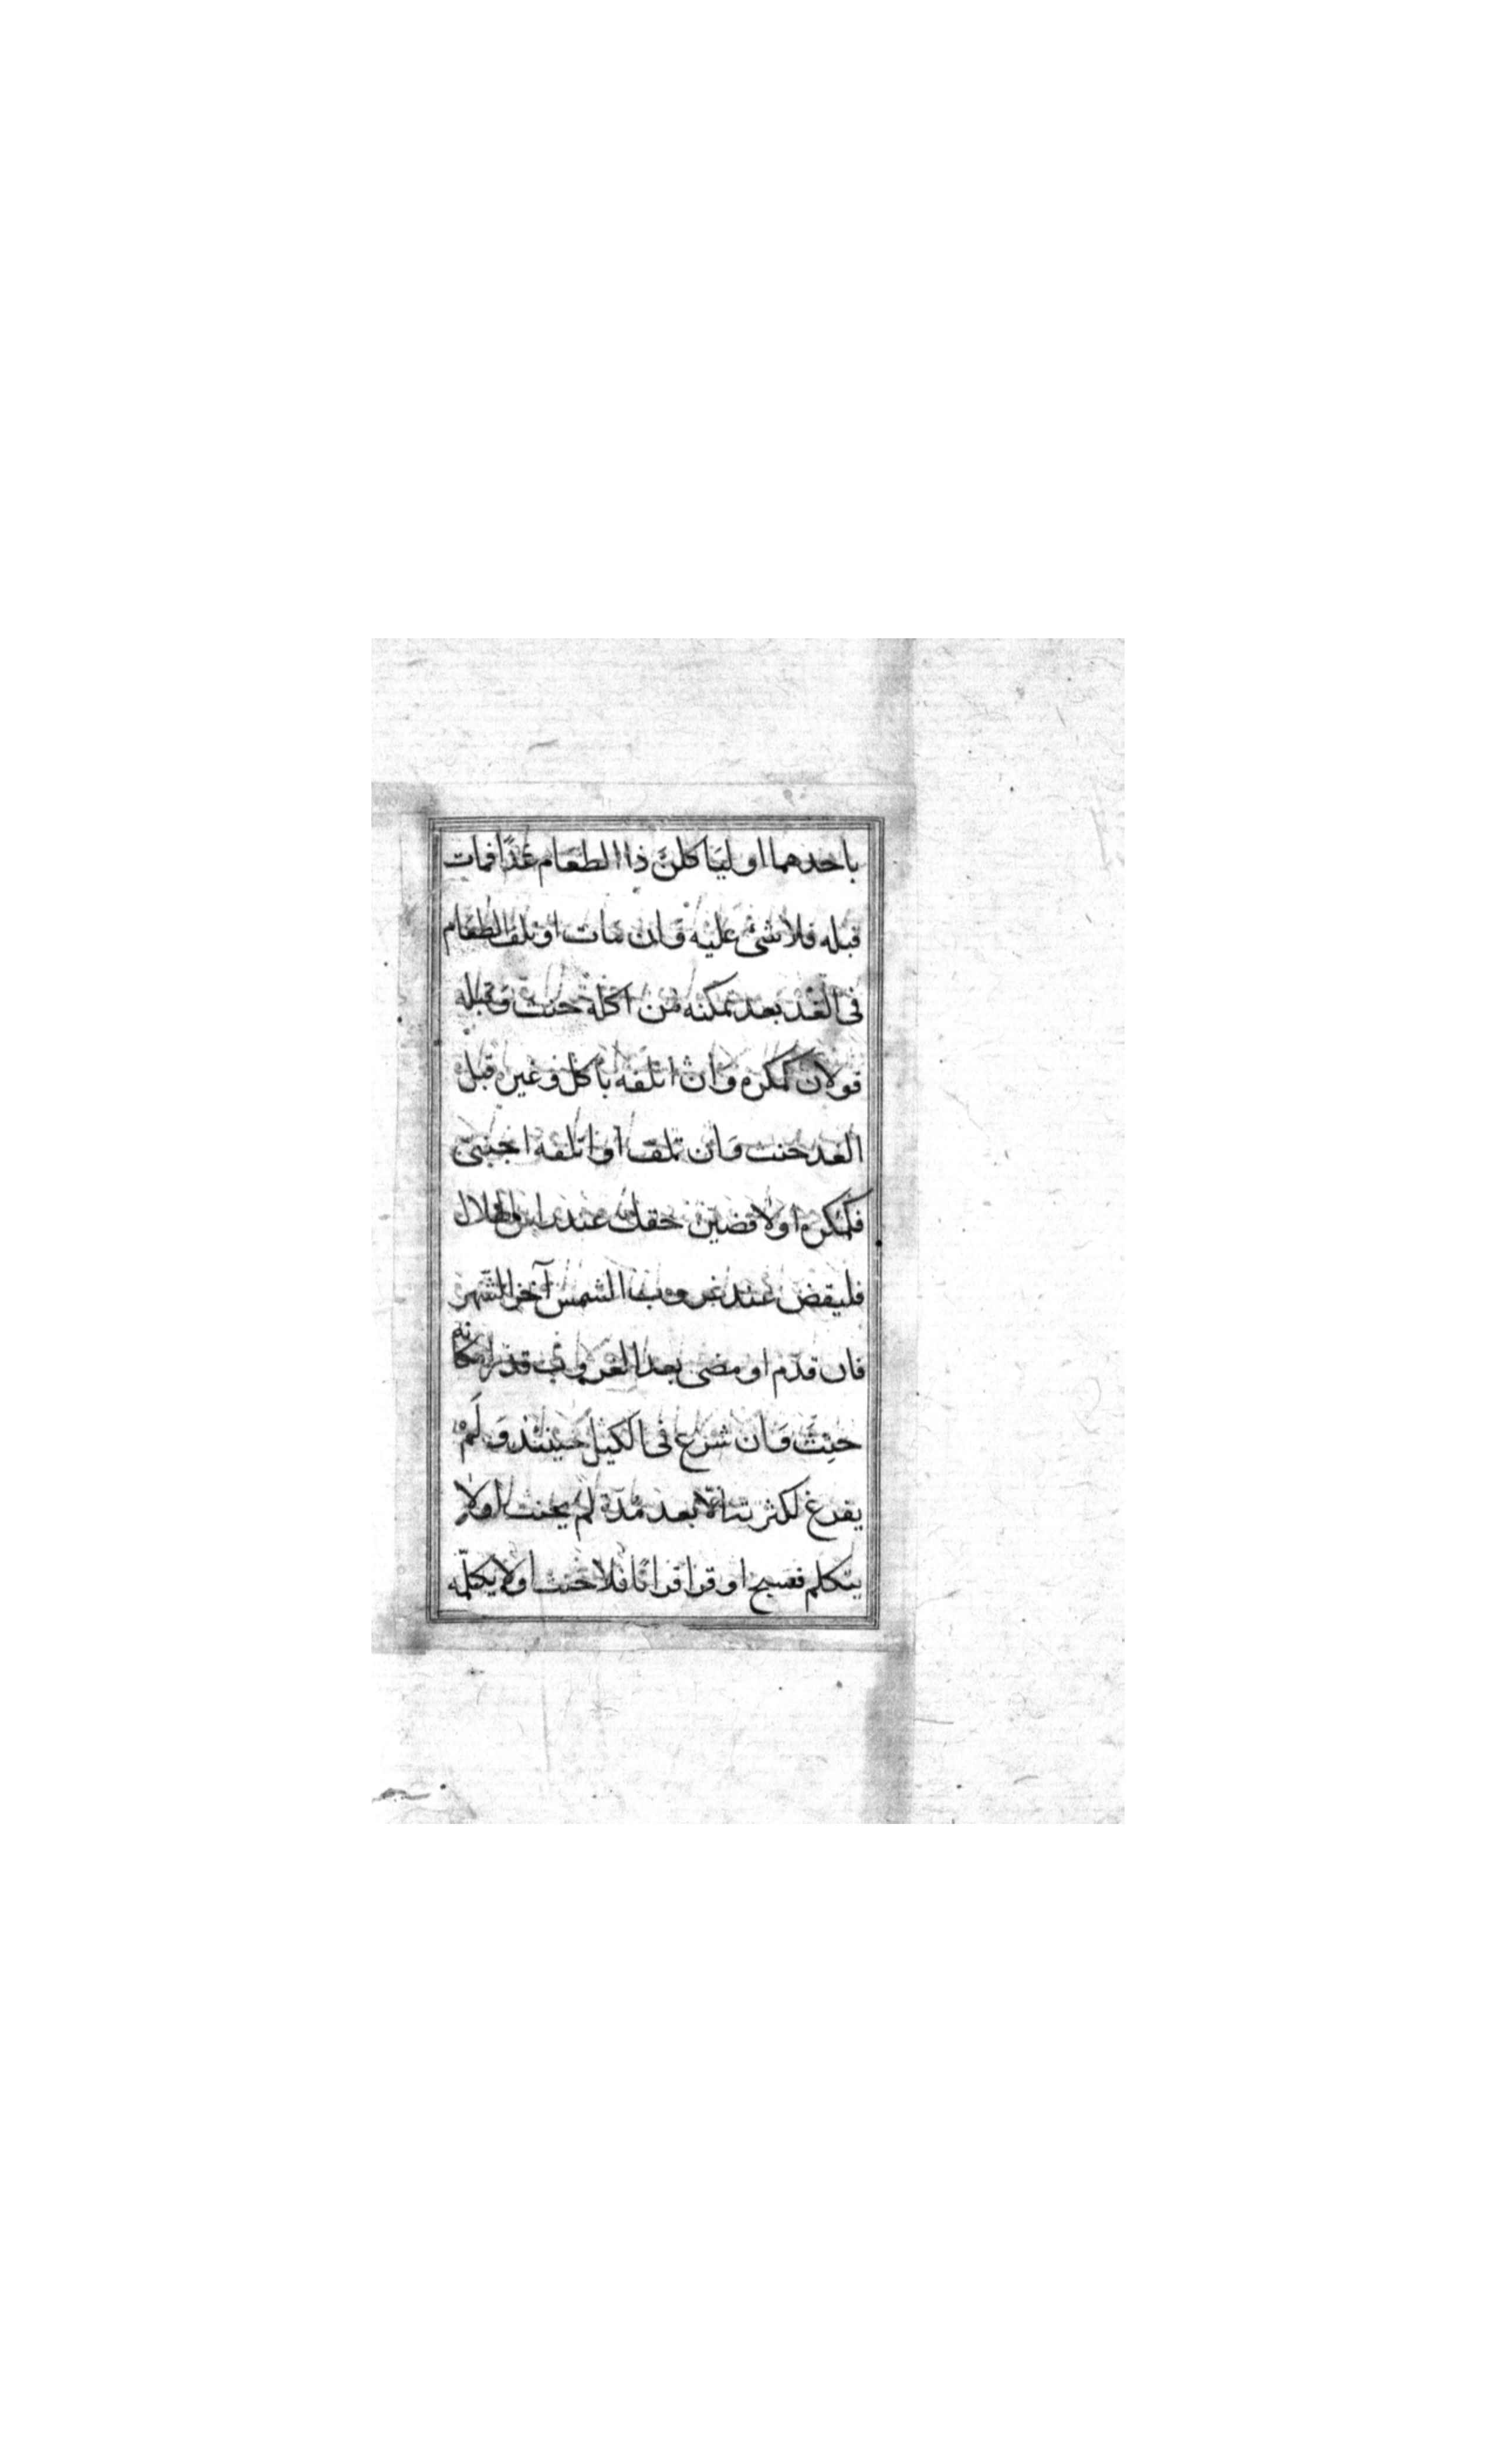 باحدهما او ليَاكلنّ ذا الطعَام غَدًا فمات
قبله فلا شئ عليه وَان مَات او تلف الطعَام
فى الغَد بعد تمكنه من اكله حنث وَقبله
قولان كمكره وان اتلفه باكل وغيره قبل
الغد حنث وَان تلف او اتلفه اجنبى
فكمكره او لاقضين حقك عند راس الهلال
فليقض عند غروب الشمس آخر الشهر
فان قدّم او مضى بعد الغروب قدر امكانه
حنِثَ وَان شرع فى الكيل حينئذ وَلَم
يفرغ لكثرته الا بعد مُدّة لم يحنث او لا
يتكلم فسبح او قرا قرانًا فلا حنث او لا يكلّمه